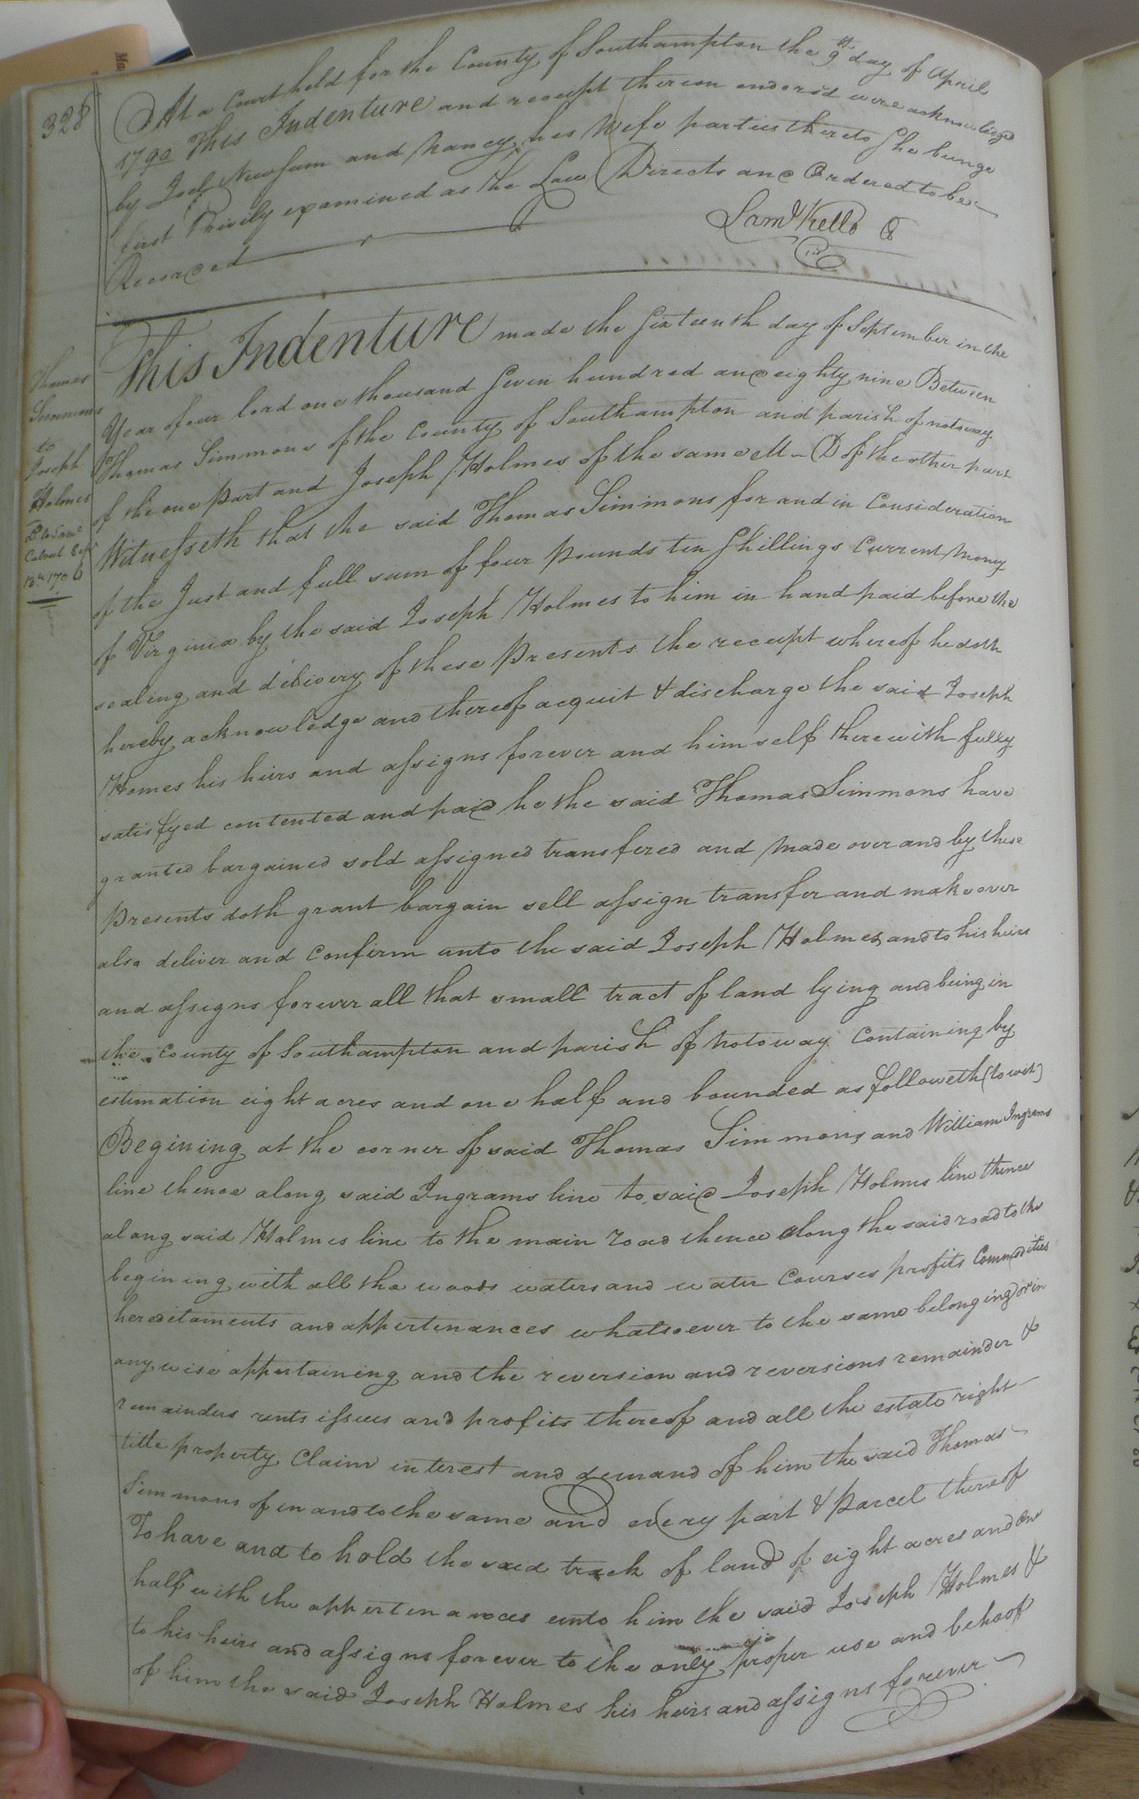 328
At a Court held for the County of Southampton the 9th day of April
1790 This Indenture and receipt thereon endorsd were acknowledged
by Joel Newsum and Nancy his Wife parties thereto She being
first Privily examined as the Law Directs and Ordered to be
Recorded
Saml Kello
This Indenture made the Sixteenth day of September in the
Year of our lord one thousand Seven hundred and eighty nine Between
Thomas Simmons of the County of Southampton and parish of notoway
of the one Part and Joseph Holmes of the same of the other part
Witnesseth that the said Thomas Simmons for and in Consideration
of the Just and full sum of four Pounds ten Shillings Current Money
of Virginia by the said Joseph Holmes to him in hand paid before the
sealing and delivery of these Presents the receipt whereof he doth
hereby acknowledge and thereof acquit & discharge the said Joseph
Homes his heirs and assigns forever and himself therewith fully
satisfyed contented and paid he the said Thomas Simmons have
granted bargained sold assigned transfered and Made over and by these
Presents doth grant bargain sell assign transfer and make over
also deliver and Confirm unto the said Joseph Holmes and to his heirs
and assigns forever all that small tract of land lying and being in
the County of Southampton and parish of Notoway Containing by
estimation eight acres and one half and bounded as followeth (to wit)
Begining at the corner of said Thomas Simmons and William Ingrams
line thence along said Ingrams line to said Joseph Holmes line thence
along said Holmes line to the main road thence along the said road to the
begining with all the woods waters and water Courses profits Commodities
hereditaments and appertenances whatsoever to the same belonging or in
any wise appertaining and the reversion and reversions remainder &
remainders rents issues and profits thereof and all the estate right
title property Claim interest and demand of him the said Thomas
Simmons of in and to the same and every part & Parcel thereof
To have and to hold the said track of land of eight acres and one
half with the appertenances unto him the said Joseph Holmes &
to his heirs and assigns forever to the only proper use and behoof
of him the said Joseph Holmes his heirs and assigns forever
Thomas
Simmons
to
Joseph
Holmes